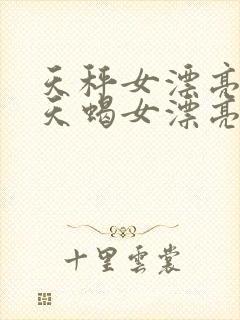 天秤女漂亮
天蝎女漂亮
十里雲裳